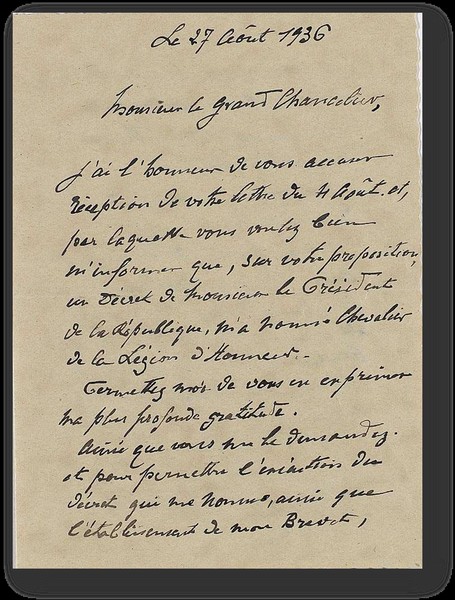 Le 27 Août 1936
Monsieur le Grand Chancelier,
j'ai l'honneur de vous accuser
réception de votre lettre du 4 Août, et,
par laquelle vous voulez bien
m'informer que, sur votre proposition,
un Décret de Monsieur le Président
de la République, m'a nommé Chevalier
de la Légion d'Honneur.
Permettez moi de vous en exprimer
ma plus profonde gratitude.
Ainsi que vous me le demandez.
et pour permettre l'exécution du
décret qui me nomme, ainsi que
l'établissement de mon Brevet,